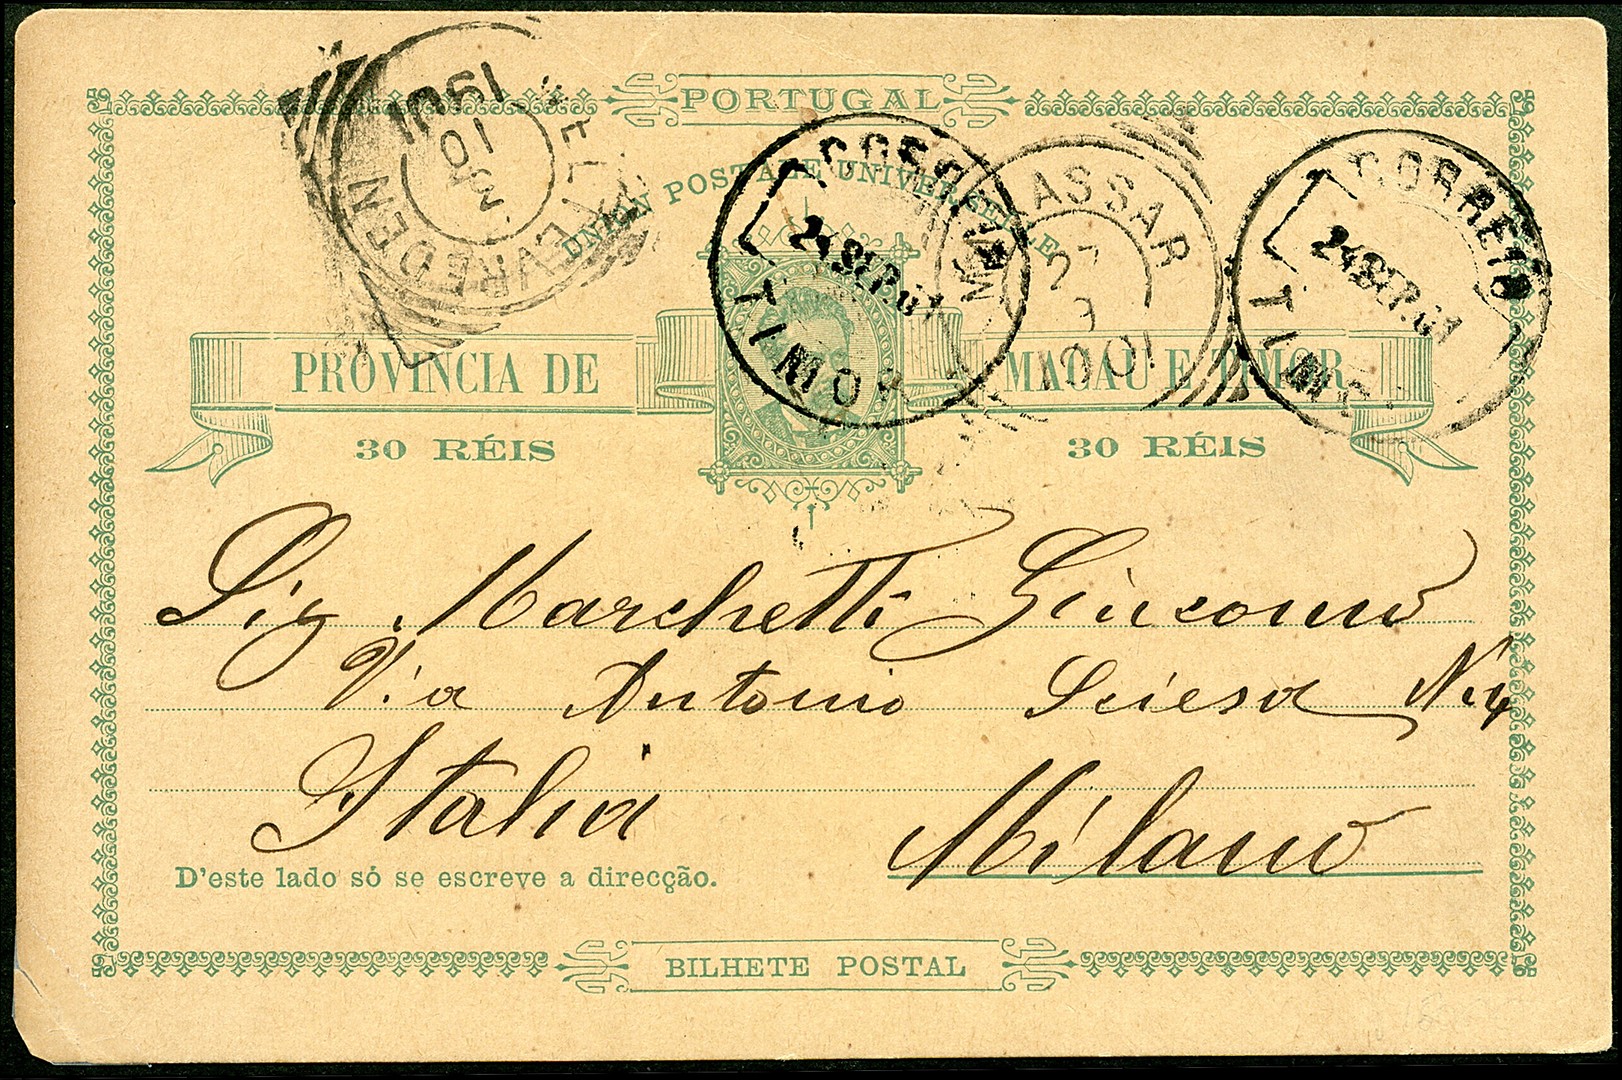 PORTUGAL
UNION POSTALE UNIVERSELLE
WELTEVREDEN
3 10 1901
CORREIO
24 SEP. 01
TIMOR
MAKASSAR
27 9 1901
CORREIO
24 SEP. 01
TIMOR
PROVINCIA DE MACAU E TIMOR
30 RÉIS 30 RÉIS
Sig. Marchetti Giacomo
Via Antonio Sciesa
Italia Milano
D'este lado só se escreve a direcção.
BILHETE POSTAL